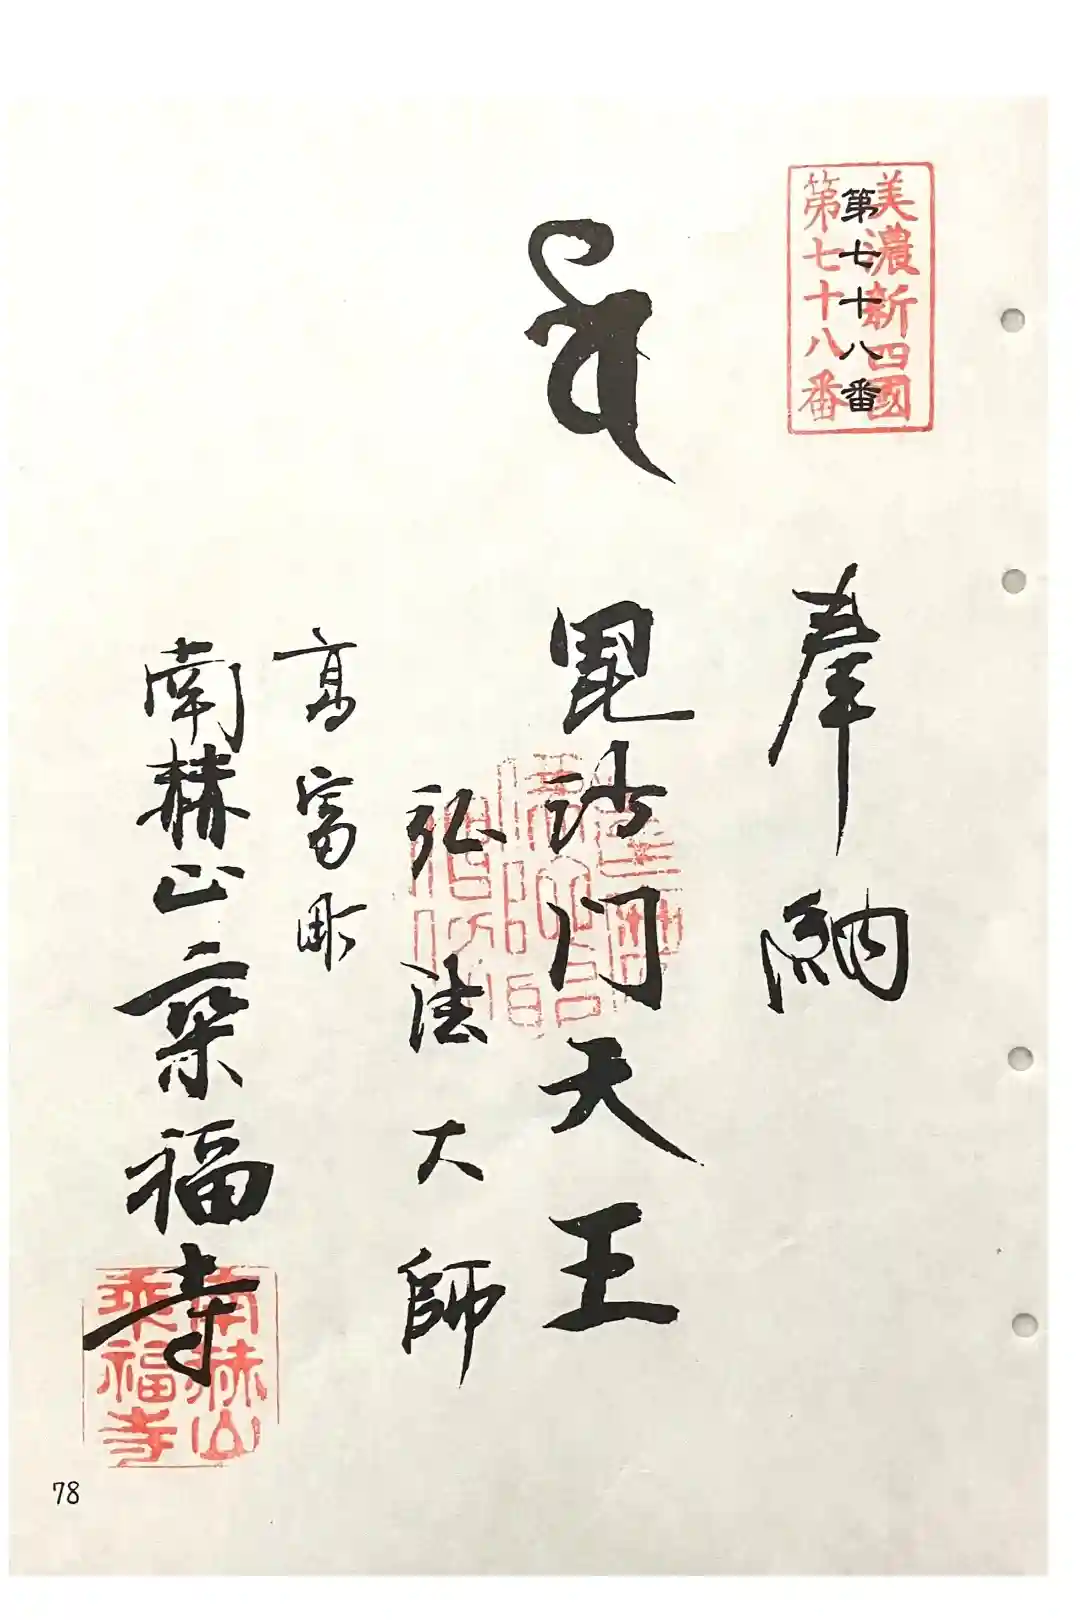 美濃新四國
第七十八番
第七十八番
奉納
毘沙門天王
弘法大師
高富町
南赫山乗福寺
南赫山
乗福寺
78